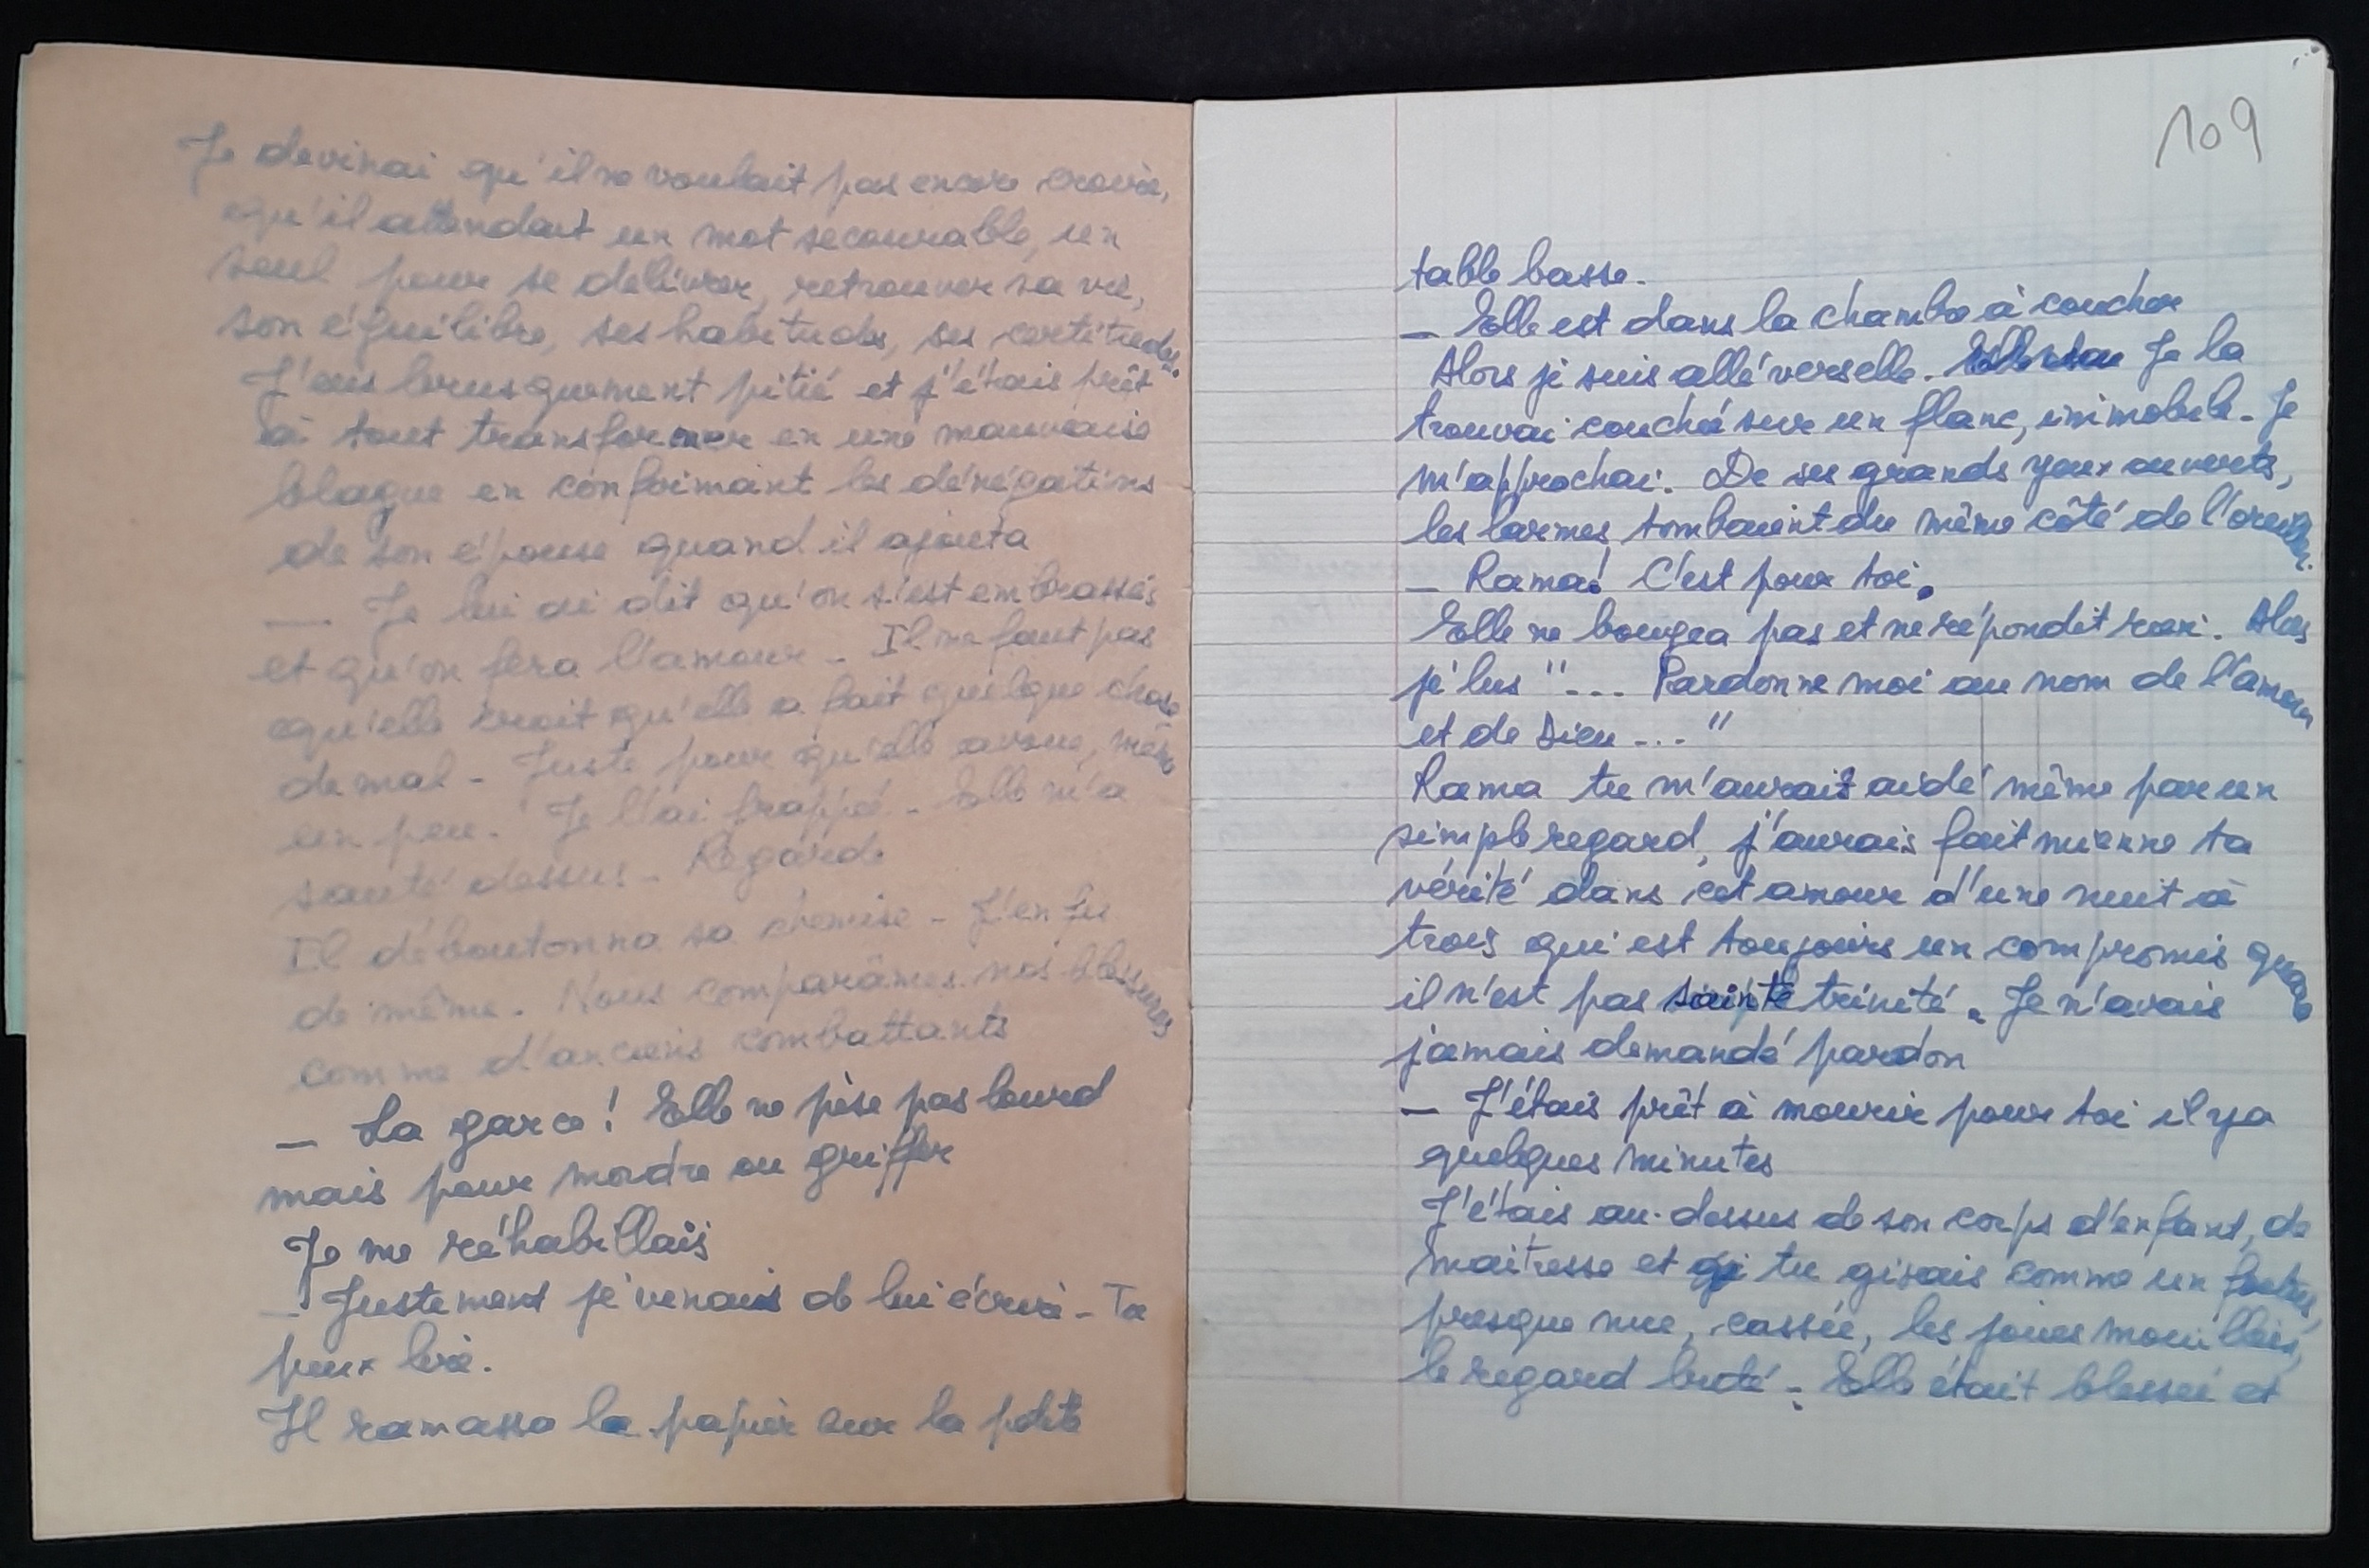 Je devinai qu'il ne voulait pas encore croire,
qu'il attendait un mot secourable, un
seul pour se délivrer, retrouver sa vie,
son équilibre, ses habitudes, ses certitudes.
J'eus brusquement pitié et j'étais prêt
à tout transformer en une mauvaise
blague en confirmant les dénégations
de son épouse quand il ajouta
— Je lui ai dit qu'on s'est embrassés
et qu'on fera l'amour - Il ne faut pas
qu'elle croit qu'elle a fait quelque chose
de mal - Juste pour qu'elle avoue, même
un peu. Je l'ai frappée - Elle m'a
sauté dessus - Regarde
Il déboutonna sa chemise - J'en fis
de même. Nous comparâmes nos blessures
comme d'anciens combattants
— La garce ! Elle ne pèse pas lourd
mais pour mordre ou griffer
Je me réhabillais
— Justement je venais de lui écrire - Tu
peux lire.
Il ramassa le papier sur la petite
109
table basse.
— Elle est dans la chambre à coucher
Alors je suis allé vers elle. Je la
trouvai couchée sur un flanc, immobile - Je
m'approchai. De ses grands yeux ouverts,
les larmes tombaient du même côté de l'oreiller.
— Rama! C'est pour toi.
Elle ne bougea pas et ne répondit rien. Alors
je lus "... Pardonne moi au nom de l'amour
et de Dieu ..."
Rama tu m'aurais aidé même par un
simple regard, j'aurais fait mienne ta
vérité dans cet amour d'une nuit à
trois qui est toujours un compromis quand
il n'est pas sainte trinité. Je n'avais
jamais demandé pardon
— J'étais prêt à mourir pour toi il y a
quelques minutes
J'étais au-dessus de son corps d'enfant, de
maitresse et tu gisais comme un
presque nue, cassée, les joues mouillées,
le regard buté. Elle était blessée et